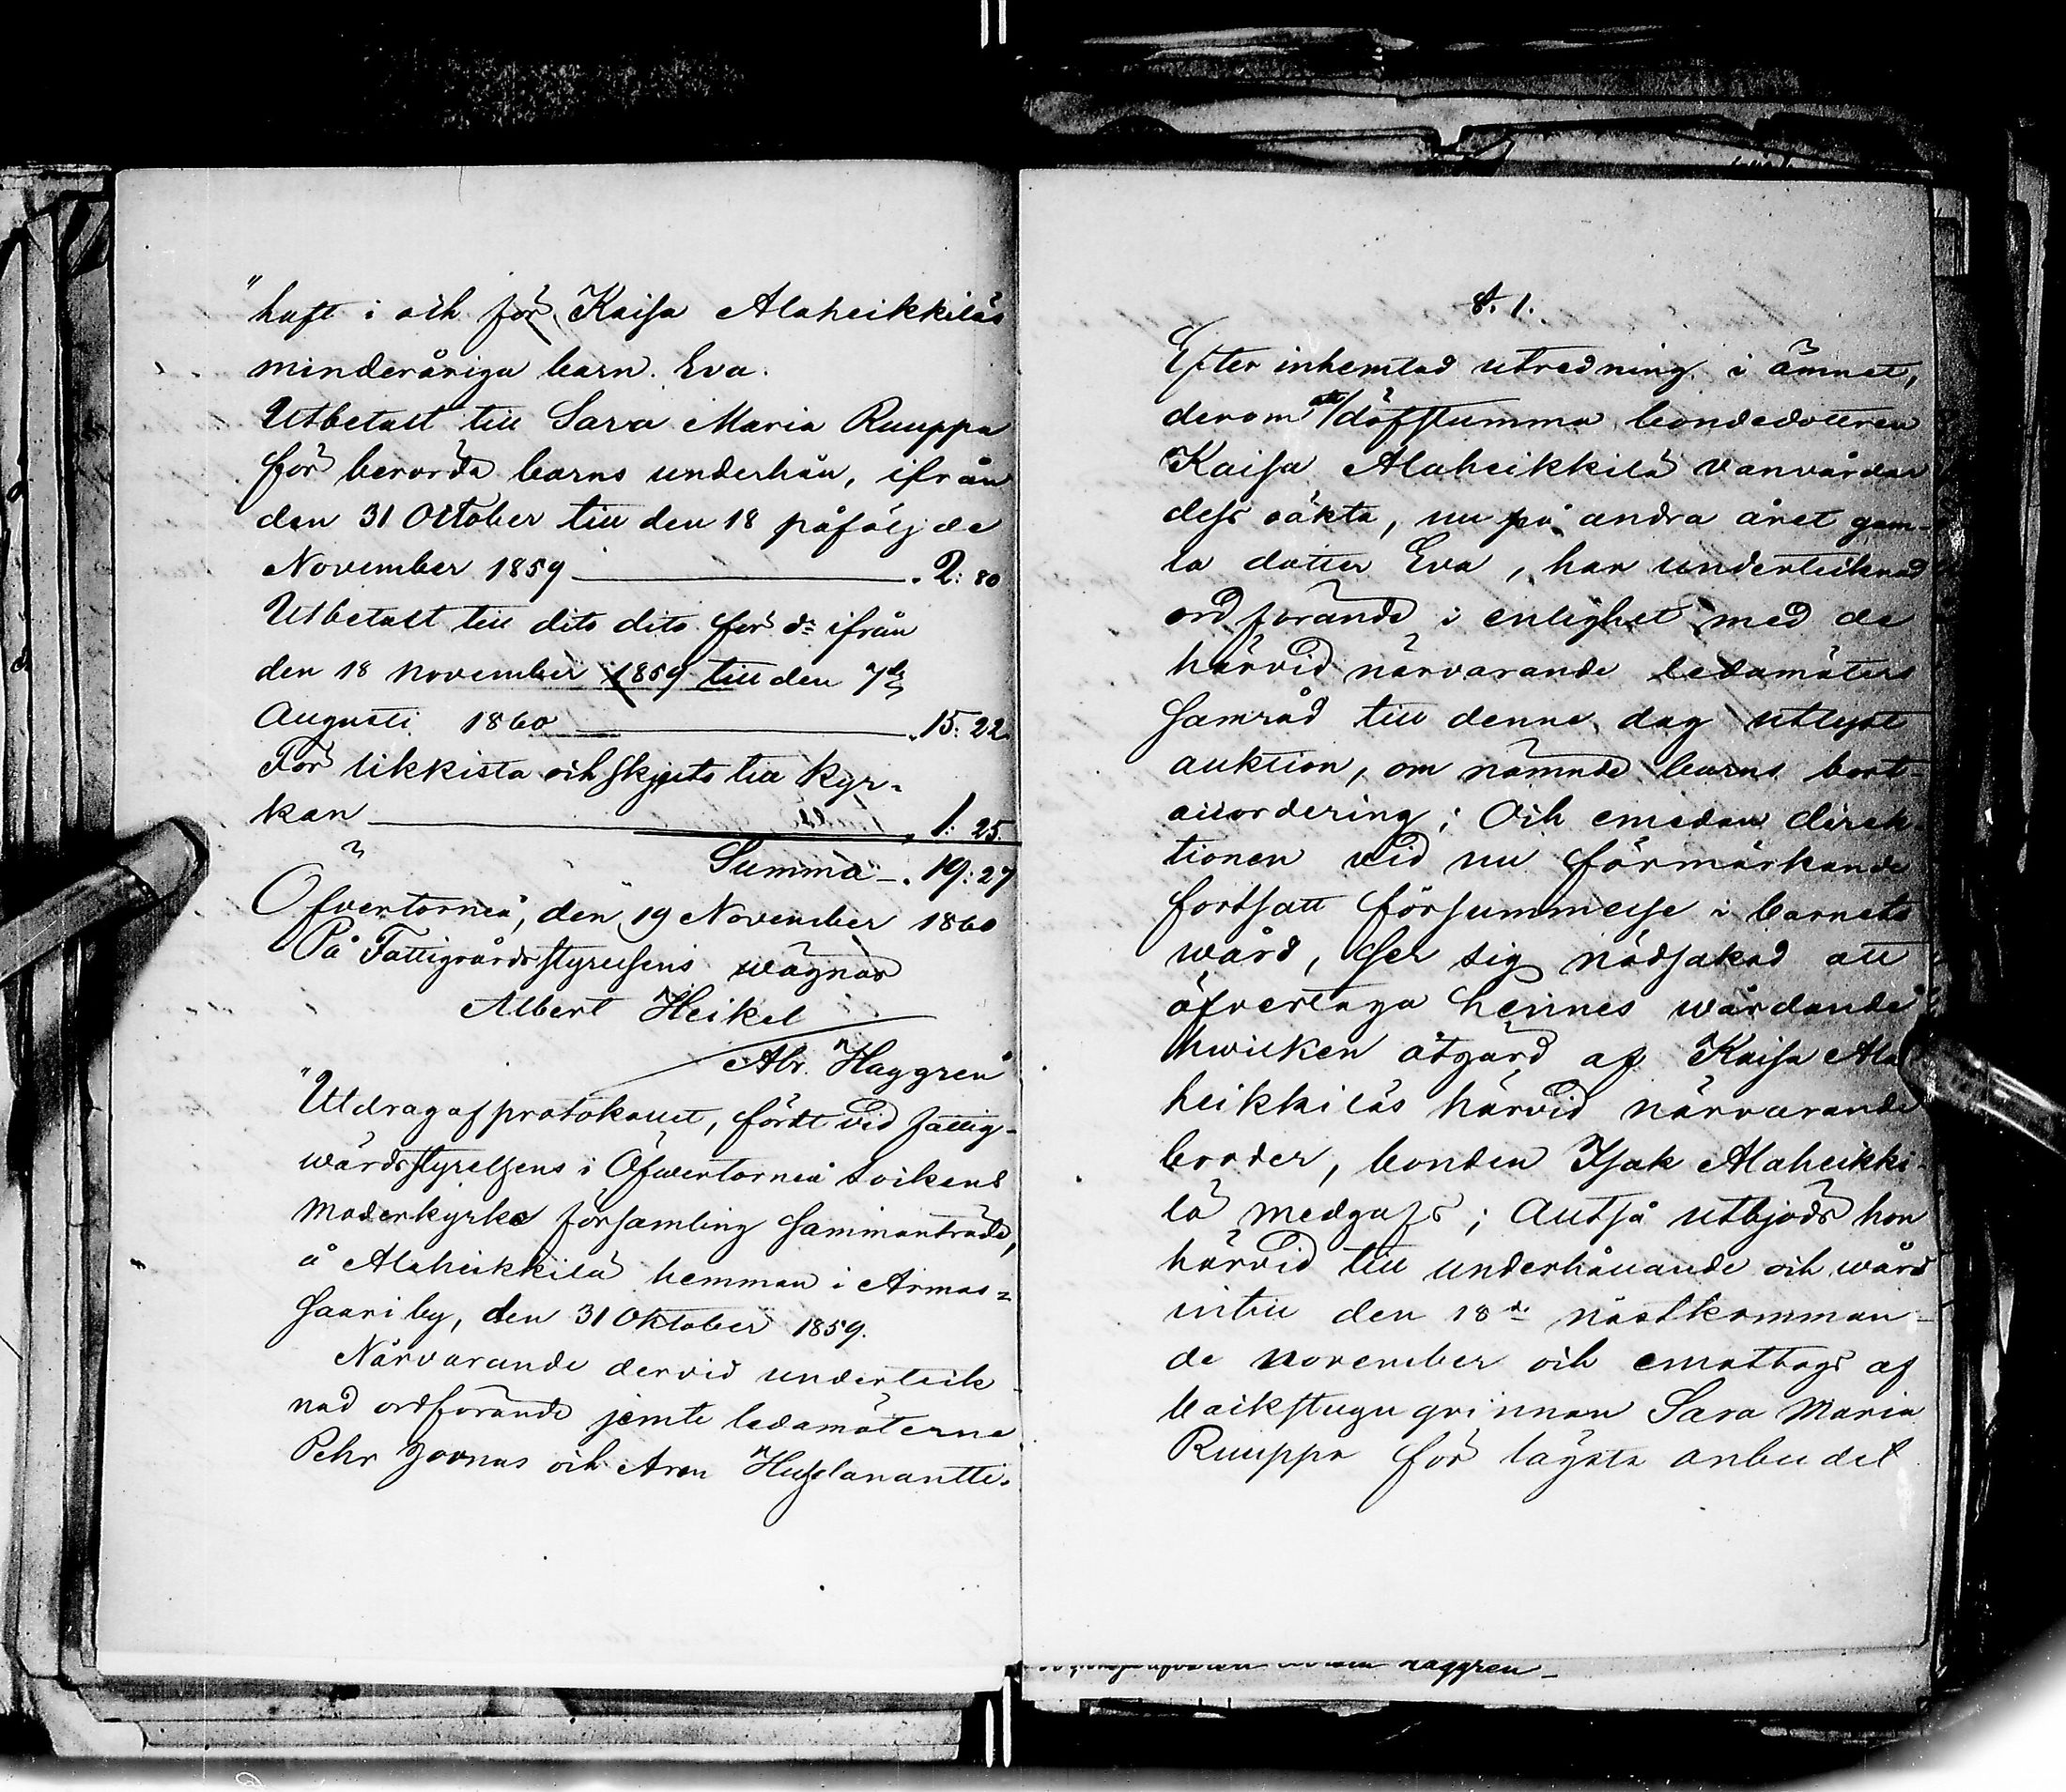 "haft i och för Kaisa Alaheikkiläs
minderåriga barn. Eva.
Utbetalt till Sara Maria Ruuppa
för berörda barns underhåll, ifrån
den 31 October till den 18 påföljde
November 1859 ———— „ 2: 80
Utbetalt till dito dito för do ifrån
den 18 November 1859 till den 7de
Augusti 1860 ———— „ 15: 22.
För likkista och skjuts till Kyr-
kan ———— „ 1: 25.
Summa — „ 19: 27
Öfvertorneå, den 19 November 1860
På Fattigvårdsstyrelsens wägnar
Albert Heikel
Abr. Häggren"
"Utdrag af protokollet, fördt vid fattig-
wårdsstyrelsens i Öfwertorneå Sokens
Moderkyrko församling Sammanträde,
å Alaheikkilä hemman i Armas-
saari by, den 31 Oktober 1859.
Närvarande dervid underteck-
nad ordförande jemte ledamöterne
Pehr och Aron
§. 1.
Efter inhemtad utredning i ämnet,
derom att döfstumma bondedottren
Kaisa Alaheikkilä vanvårdar
dess oäkta, nu på andra året gam-
la dotter Eva, har undertecknad
ordförande i enlighet med de
härvid närvarande ledamöters
samråd till denne dag utlyst
auktion, om nämnde barns bort-
ackordering; Och emedan direk-
tionen vid nu förmärkande
fortsatt försummelse i barnets
wård, ser sig nödsakad att
öfvertaga hennes wårdande
hwilken åtgärd af Kaisa Ala-
heikkiläs härvid närvarande
broder, bonden Isak Alaheikki-
lä medgafs; Alltså utbjöds hon
härvid till underhållande och wård
intill den 18de nästkomman-
de november och emottogs af
backstugu qvinnan Sara Maria
Ruuppa för lägsta anbudet
Häggren